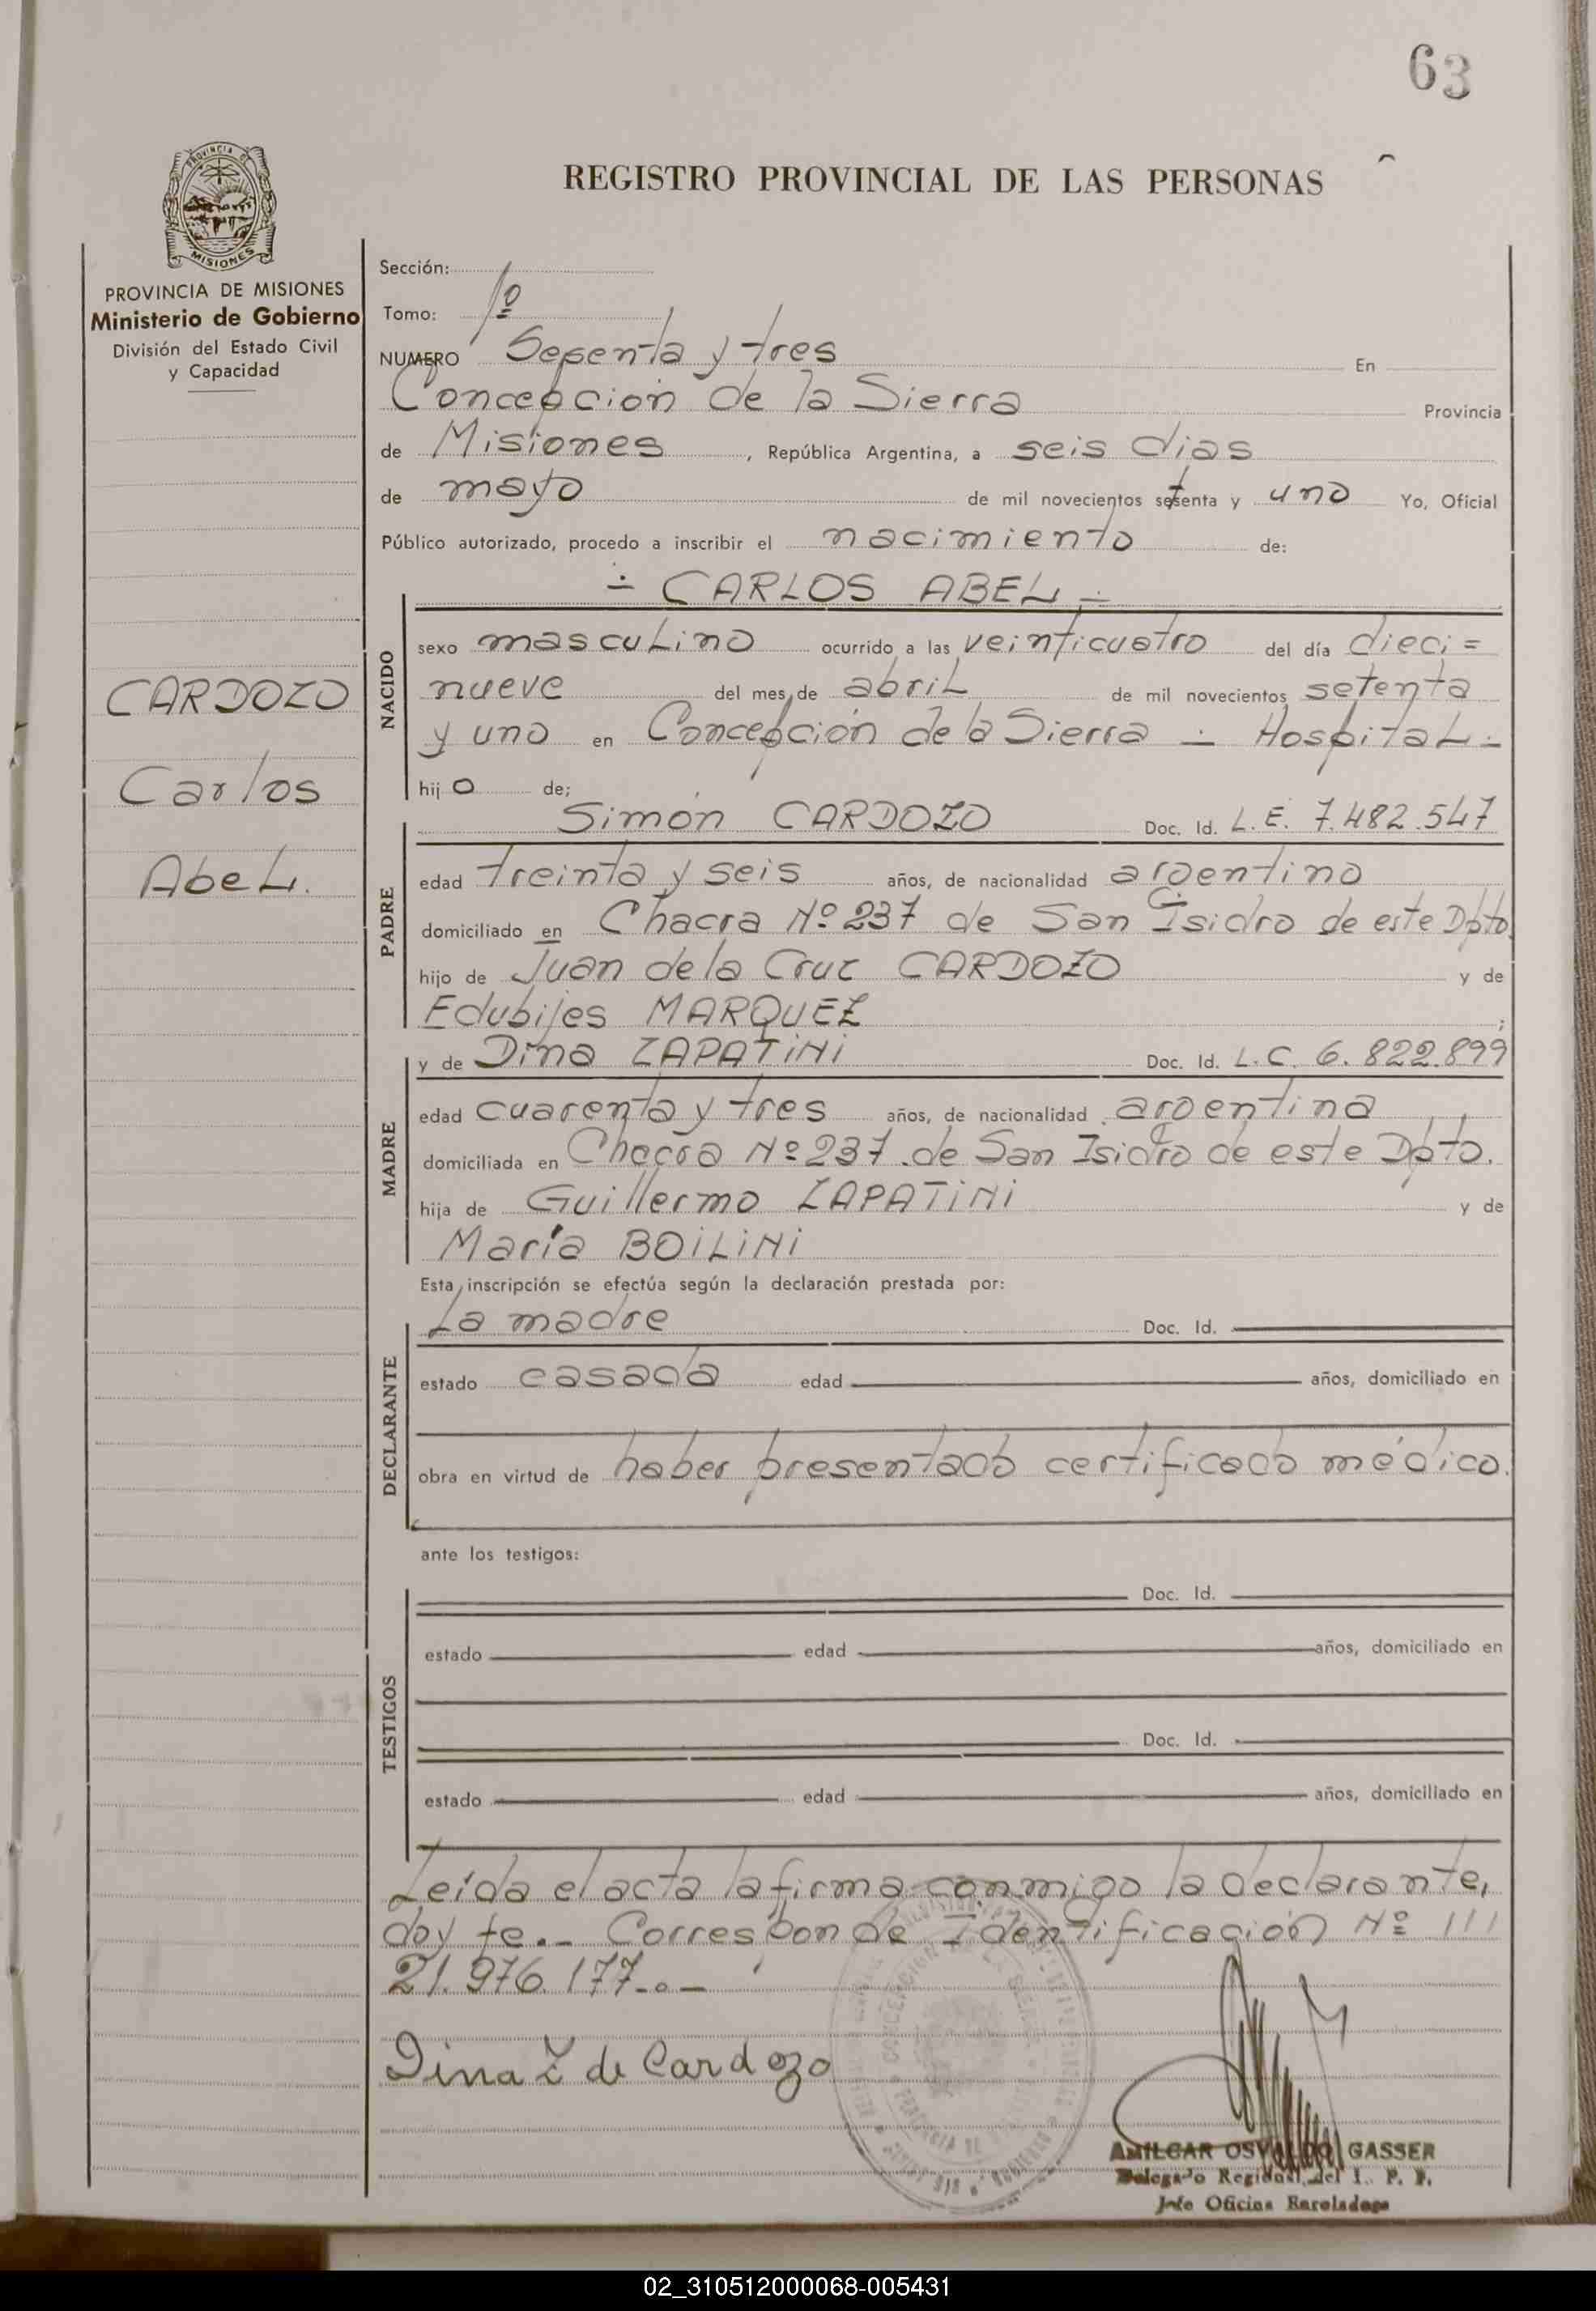 63
REGISTRO PROVINCIAL DE LAS PERSONAS
PROVINCIA DE
MISIONES
PROVINCIA DE MISIONES
Ministerio de Gobierno
División del Estado Civil
y Capacidad
CARDOZO
Carlos
Abel.
Sección:
Tomo: 1º
NUMERO Sesenta y tres En
Concepción de la Sierra Provincia
de Misiones, República Argentina, a seis dias
de mayo de mil novecientos setenta y uno Yo, Oficial
Público autorizado, procedo a inscribir el nacimiento de:
CARLOS ABEL
NACIDO
sexo masculino ocurrido a las veinticuatro del día dieci=
nueve del mes de abril de mil novecientos setenta
y uno en Concepción de la Sierra - Hospital.-
hijo de;
PADRE
Simón CARDOZO Doc. Id. L.E. 7.482.547
edad treinta y seis años, de nacionalidad argentino
domiciliado en Chacra Nº 237 de San Isidro de este Dpto.
hijo de Juan de la Cruz CARDOZO y de
Edubijes MARQUEZ ;
y de Dina ZAPATiNi Doc. Id. L.C. 6.822.899
MADRE
edad cuarenta y tres años, de nacionalidad argentina
domiciliada en Chacra Nº 237 de San Isidro de este Dpto.
hija de Guillermo ZAPATiNi y de
María BOiLiNi
Esta inscripción se efectúa según la declaración prestada por:
DECLARANTE
La madre Doc. Id.
estado casada edad años, domiciliado en
obra en virtud de haber presentado certificado médico.
ante los testigos:
TESTIGOS
Doc. Id.
estado edad años, domiciliado en
Doc. Id.
estado edad años, domiciliado en
Leída el acta la firma conmigo la declarante,
doy fe.- Corresponde Identificación Nº ///
21.976.177.-
Dina Z de Cardozo
AMILCAR OSVALDO GASSER
Delegado Regional del I. P. P.
Jefe Oficina
02_310512000068-005431